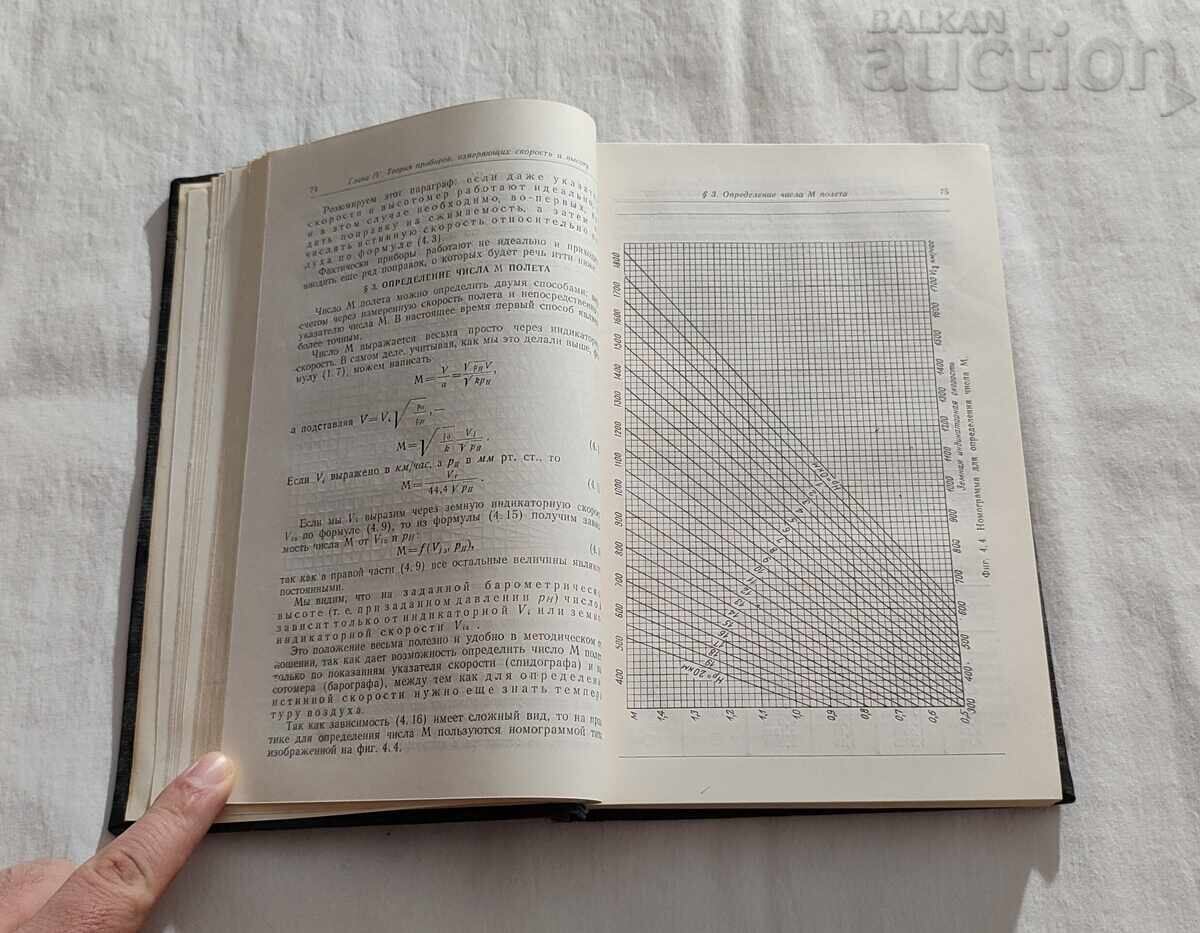 BALKAN
auction
74 Глава IV. Теория приборов, измеряющих скорость и высоту
Резюмируем этот параграф: если даже указат
скорости и высотомер работают идеально,
и в этом случае необходимо, во-первых,
дить поправку на сжимаемость, а затем
числять истинную скорость относительно
духа по формуле (4.3).
Фактически приборы работают не идеально и приходи
вводить еще ряд поправок, о которых будет речь итти ниже
§ 3. ОПРЕДЕЛЕНИЕ ЧИСЛА М ПОЛЕТА
Число М полета можно определить двумя способами:
счетом через измеренную скорость полета и непосредственно
указателю числа М. В настоящее время первый способ явля
более точным.
Число М выражается весьма просто через индикаторн
скорость. В самом деле, учитывая, как мы это делали выше, фо
мулу (1.7), можем написать
M = V/a = V√ρ_H V/√kp_H,
а подставляя V=V_i √
M=√
(4.
Если V_i выражено в км/час, а p_H в мм рт. ст., то
M = V_i/44,4 √p_H.
(4.
Если мы V_i выразим через земную индикаторную скорос
V_iз по формуле (4.9), то из формулы (4.15) получим зави
мость числа М от V_iз и p_H:
M=f(V_iз, p_H), (4.
так как в правой части (4.9) все остальные величины являют
постоянными.
Мы видим, что на заданной барометрическ
высоте (т. е. при заданном давлении p_H) число
зависит только от индикаторной V_i или земн
индикаторной скорости V_iз.
Это положение весьма полезно и удобно в методическом о
ношении, так как дает возможность определить число М поле
только по показаниям указателя скорости (спидографа) и вы
сотомера (барографа), между тем как для определени
истинной скорости нужно еще знать темпер
туру воздуха.
Так как зависимость (4.16) имеет сложный вид, то на пра
тике для определения числа М пользуются номограммой типа
изображенной на фиг. 4.4.
§ 3. Определение числа М полета 75
1800
1700
1600
1500
1400
1300
1200
1100
1000
900
800
700
600
500
400
М 1,4 1,3 1,2 1,1 1,0 0,9 0,8 0,7 0,6 0,5
H_p=0 км 1 2 3 4 5 6 7 8 9 10 11 12 13 14 15 16 17 18 19 H_p=20 км
300 400 500 600 700 800 900 1000 1100 1200 1300 1400 1500 1600 1700 V_iз км/час
Земная индикаторная скорость
Фиг. 4.4. Номограмма для определения числа М.